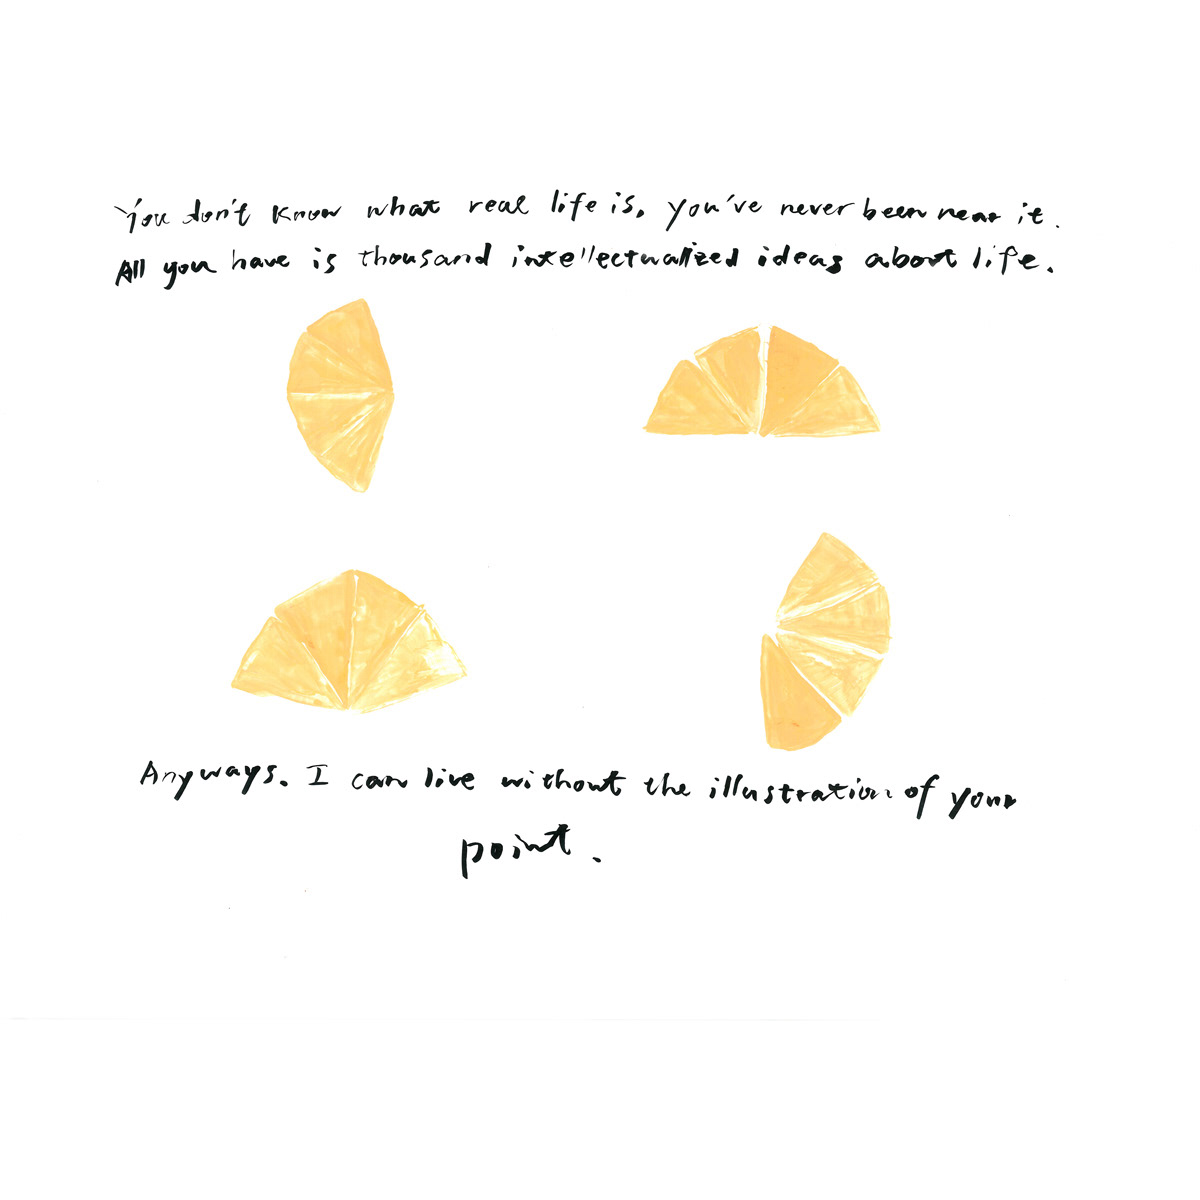 You don't know what real life is, you've never been near it.
All you have is thousand intellectualized ideas about life.
Anyways. I can live without the illustration of your
point.